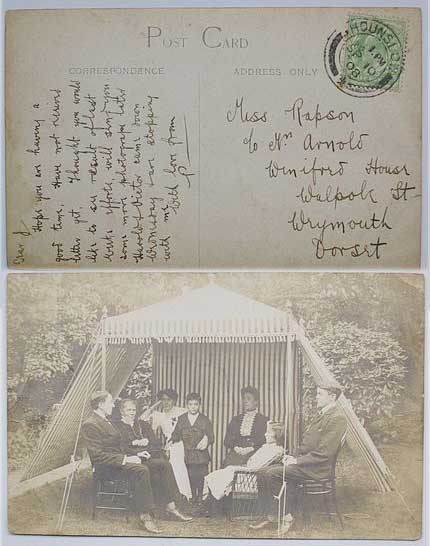 POST CARD
CORRESPONDENCE
ADDRESS ONLY
HOUNSLOW
1. PM
SP 10
08
Dear J
Hope you are having a
good time. Have not received
letter yet. Thought you would
like to see result of last
week's efforts will send you
some more photographs later
Harold & Victor came down
Wednesday & are stopping
with me.
With love from
P
Miss Rapson
c/o Mrs Arnold
Winifred House
Walpole St
Weymouth
Dorset